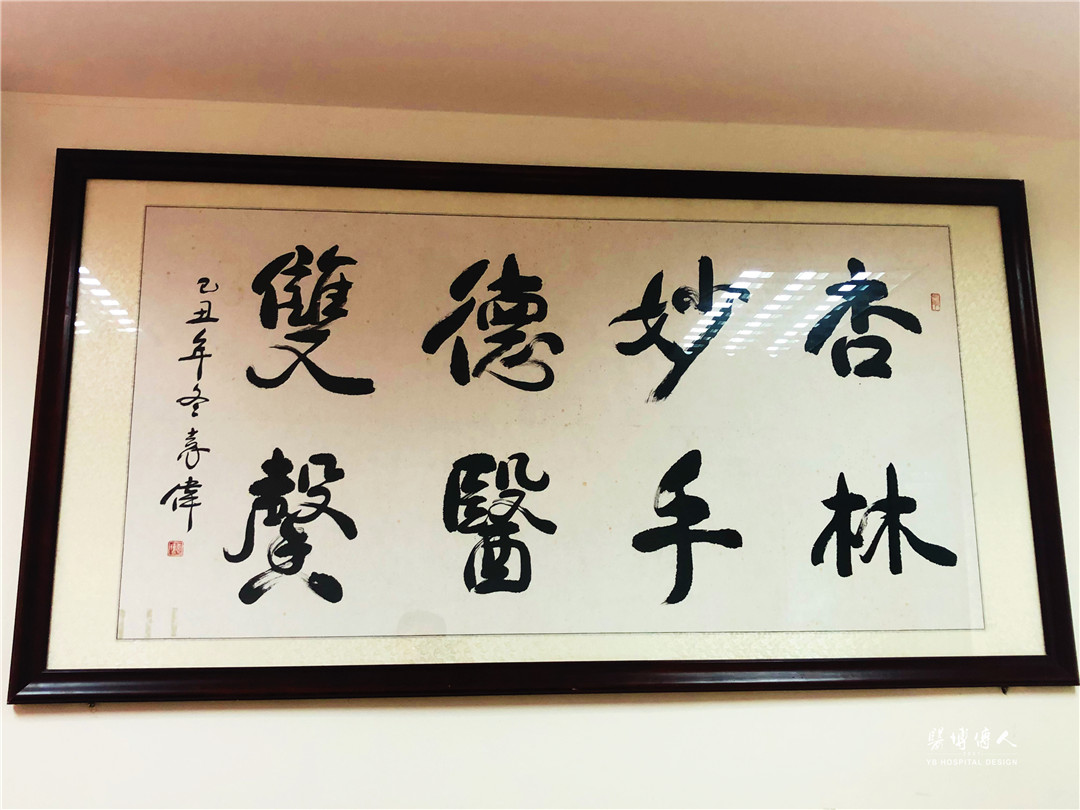 杏林
妙手
德醫
雙馨
乙丑年冬喜偉
醫博傳人
YB HOSPITAL DESIGN